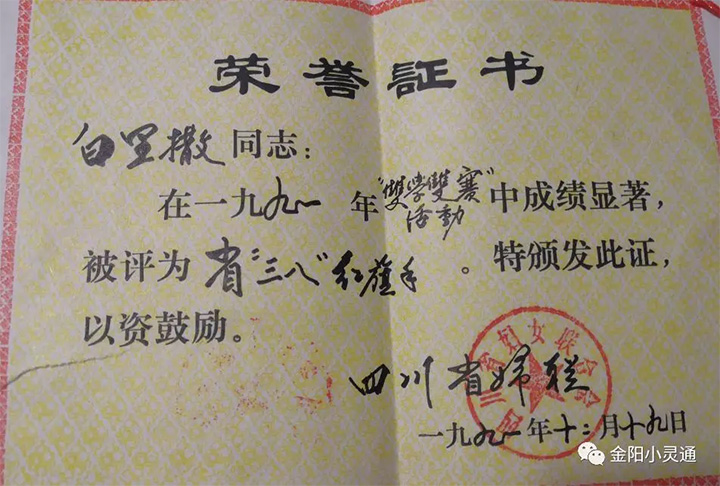 荣誉証书
白里撒同志：
在一九九一年“雙学雙赛”活動中成绩显著，
被评为省“三八”红旗手。特颁发此证，
以资鼓励。
四川省妇女联合会
四川省婦联
一九九一年十二月十九日
金阳小灵通